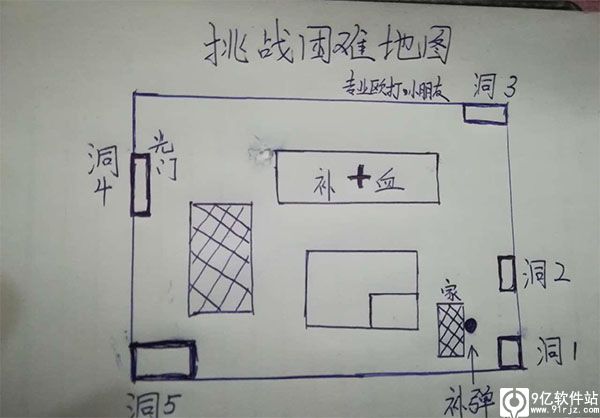 挑战困难地图
专业欧打小朋友
洞3
光门
洞4
补+血
洞2
家
洞1
补弹
洞5
9亿软件站
www.91rjz.com